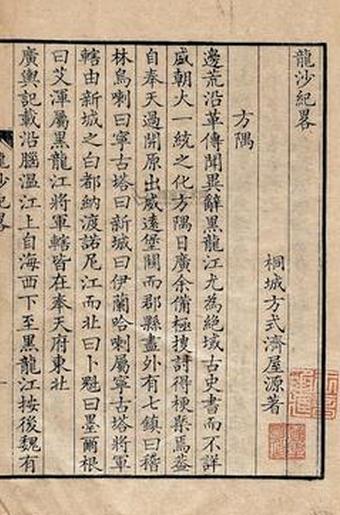 龍沙紀畧
桐城方式濟屋源著
方隅
邊荒沿革傳聞異辭黑龍江尤為絕域古史書而不詳
盛朝大一統之化方隅日廣余備極搜討得梗槩焉葢
自奉天過開原出威遠堡關而郡縣盡外有七鎮曰稽
林烏喇曰寧古塔曰新城曰伊蘭哈喇屬寧古塔將軍
轄由新城之白都納渡諾尼江而北曰卜魁曰墨爾根
曰艾渾屬黑龍江將軍轄皆在奉天府東北
廣輿記載沿腦溫江上自海西下至黑龍江按後魏有
龍沙紀畧